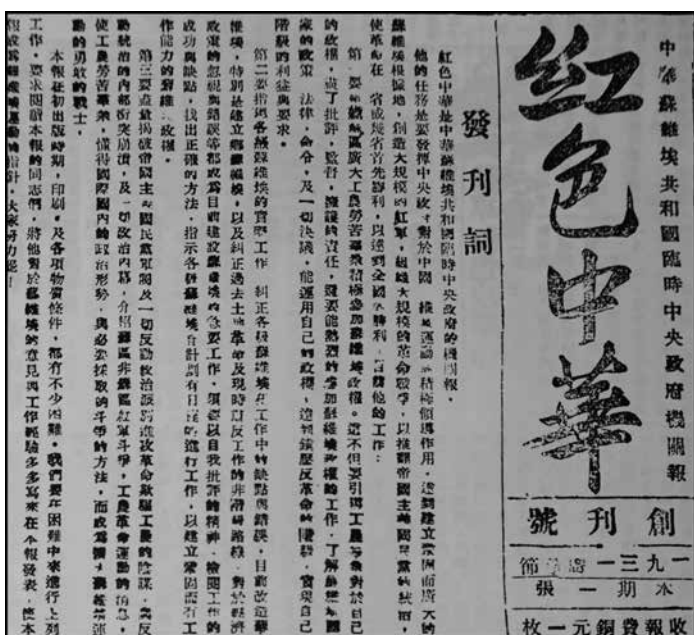 中華蘇維埃共和國臨時中央政府機關報
紅色中華
創刊號
一九三一
本期一張
收報費銅元一枚
發刊詞
紅色中華是中華蘇維埃共和國臨時中央政府的機關報。
他的任務是要發揮中央政 對於中國 維埃運動的積極領導作用，達到建立鞏固而廣大的
蘇維埃根據地，創造大規模的紅軍，組織大規模的革命戰爭，以推翻帝國主義國民黨的統治，
使革命在一省或幾省首先勝利，以達到全國 勝利。 他的工作：
第一 要 廣大工農勞苦羣衆積極參加蘇維埃政權。這不但要引導工農 衆對於自己
的政權，盡了批評，監督，擁護的責任，還要能熱烈的參加蘇維埃政權的工作，了解蘇維埃國
家的政策 法律，命令，及一切決議，能運用自己的政權，達到鎮壓反革命的 實現自己
階級的利益與要求。
第二要指導各級蘇維埃的實際工作 糾正各級蘇維埃在工作中的缺點與錯誤，目前改造
維埃，特別是建立鄉蘇維埃，以及糾正過去土地革命及現時肅反工作的非階級路線，對於經濟
政策的忽視與錯誤等都成為目前建設蘇維埃的急要工作，須要以自我批評的精神 檢閱工作的
成功與缺點，找出正確的方法，指示各級蘇維埃 有計劃有日程的進行工作，以建立鞏固而有工
作能力的蘇維 政權。
第三要盡量揭破帝國主 國民黨軍閥及一切反動政治派別進攻革命欺騙工農的陰謀，與反
動統治的內部衝突崩潰，及一切政治內幕，介紹蘇區非蘇區紅軍斗爭，工農革命運動的消息，
使工農勞苦羣衆，懂得國際國內的政治形勢，與必要採取的斗爭的方法，而成為 蘇維埃運
動的勇敢的戰士。
本報在初出版時期，印刷，及各項物質條件，都有不少困難。我們要在困難中來進行上列
工作，要求閱讀本報的同志們，將他對於蘇維埃的意見與工作經驗多多寫來在本報發表，使本
報成為蘇維埃運動的指針，大家努力罷！